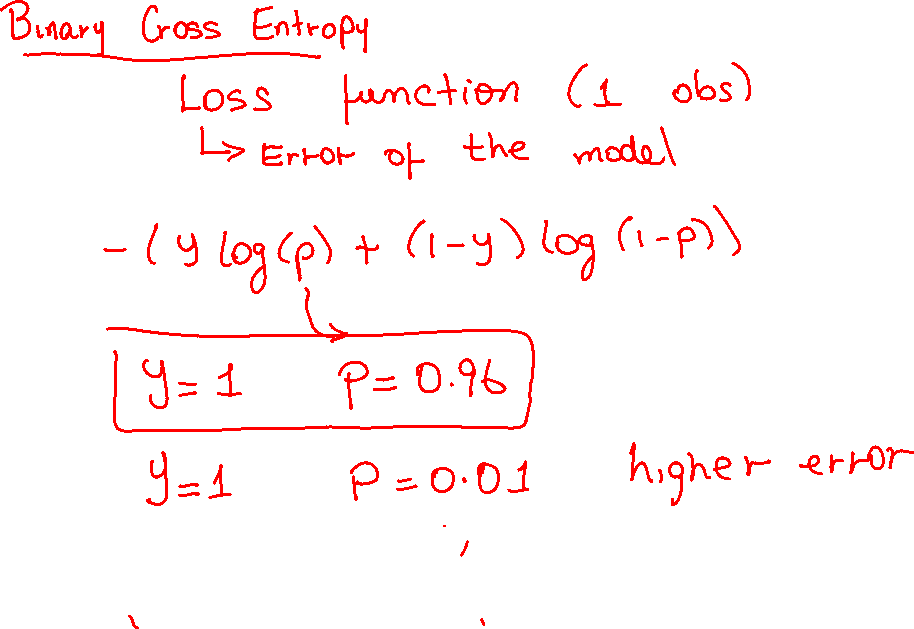 Binary Cross Entropy
Loss function (1 obs)
↳ Error of the model
- (y log(p) + (1-y) log (1-p))
y = 1 P = 0.96
y = 1 P = 0.01 higher error